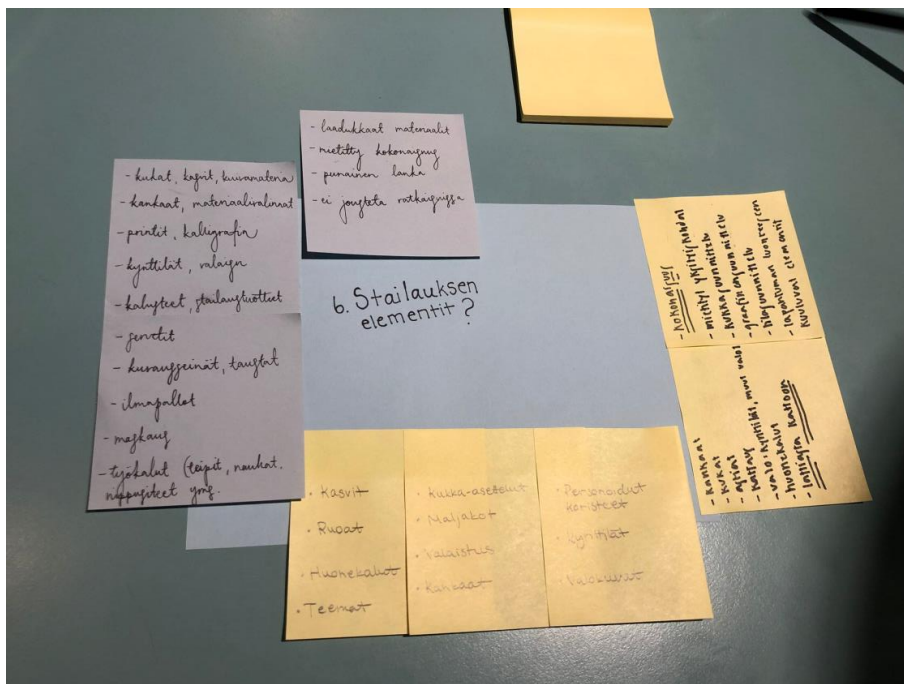 - laadukkaat materiaalit
- mietitty kokonaisuus
- punainen lanka
- ei jousteta ratkaisuissa
- kukat, kasvit, kuivamateria
- kankaat, materiaalivalinnat
- printit, kalligrafia
- kynttilät, valaisu
- kalusteet, stailaustuotteet
- servetit
- kuvausseinät, taustat
- ilmapallot
- maskaus
- työkalut (teipit, naukat.
nippusiteet yms.
6. Stailauksen
elementit?
- KOKONAISUUS
- mietityt yksityiskohdat
- kukkasuunnittelu
- graafinen suunnittelu
- tilasuunnittelu
- tapahtuman luonteeseen
kuuluvat elementit
- kankaat
- kukat
- astiat
- kattaus
- valo: kynttilät, muut valot
- huonekalut
- lattiasta kattoon
• Kasvit
• Ruoat
• Huonekalut
• Teemat
• Kukka-asetelut
• Maljakot
• Valaistus
• Kankaat
• Personoidut
koristeet
• Kynttilät
• Valokuvat